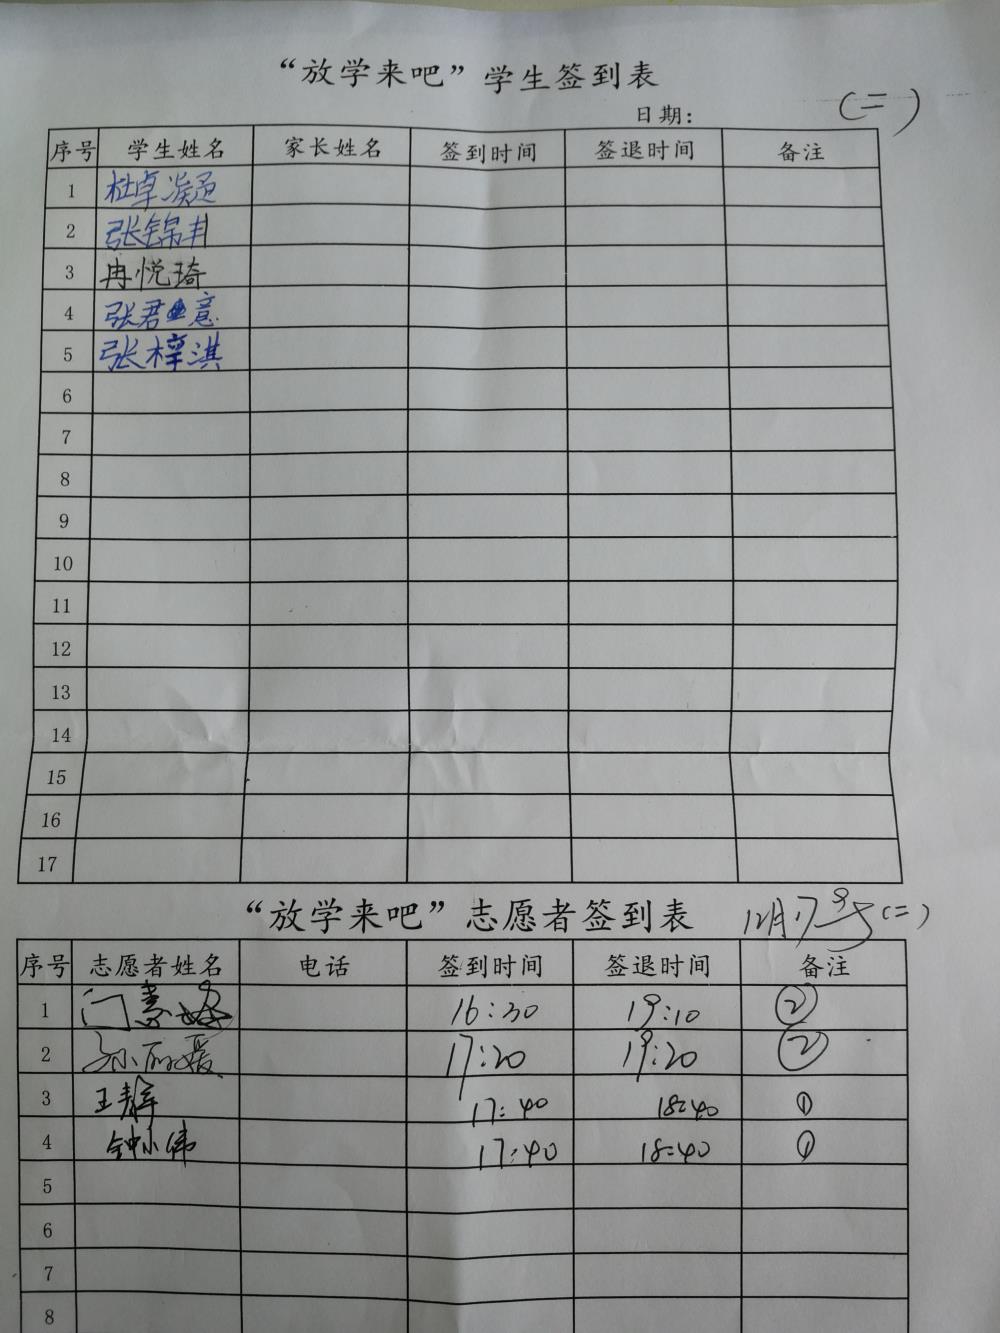 “放学来吧”学生签到表
日期： (二)
序号 学生姓名 家长姓名 签到时间 签退时间 备注
1 杜卓凝
2 张锦丰
3 冉悦琦
4 张君意
5 张梓淇
6
7
8
9
10
11
12
13
14
15
16
17
“放学来吧”志愿者签到表 12月17号(二)
序号 志愿者姓名 电话 签到时间 签退时间 备注
1 门 16:30 19:10 ②
2 孙丽媛 17:20 19:20 ②
3 王静 17:40 18:40 ①
4 钟小伟 17:40 18:40 ①
5
6
7
8